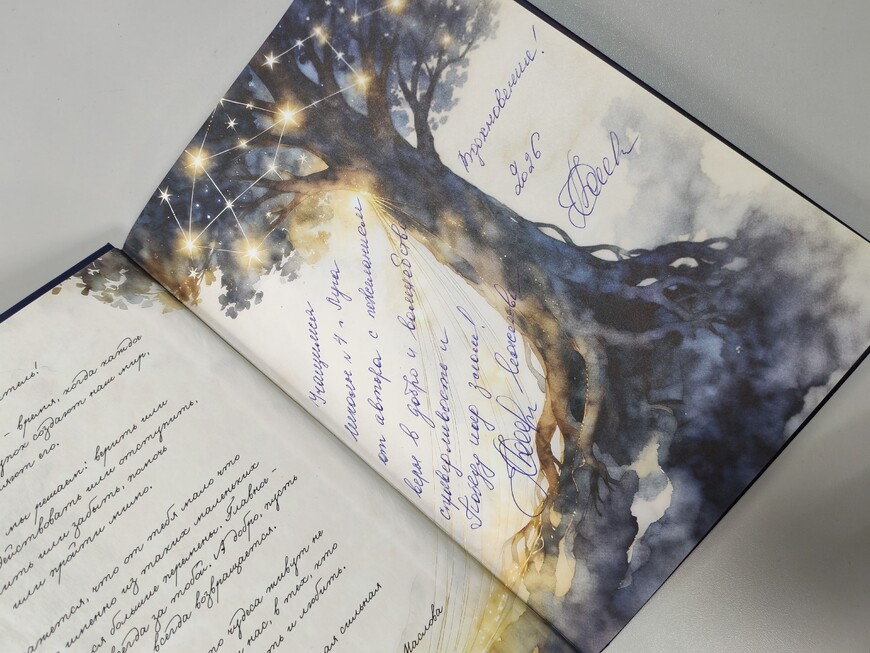 - время, когда каждая
создают наш мир,
его.
мы решаем: верить или
действовать или отступить,
или забыть, помочь
или пройти мимо.
что от тебя мало что
именно из таких маленьких
большие перемены. Главное -
всегда за тобой. А добро, пусть
всегда возвращается.
что чудеса живут не
нас, в тех, кто
и любить.
сильная
Маслова
Учащимся
школы №4 г. Луга
от автора с пожеланием
веры в добро и волшебство,
справедливость и
Победу над злом!
Вдохновения!
2026